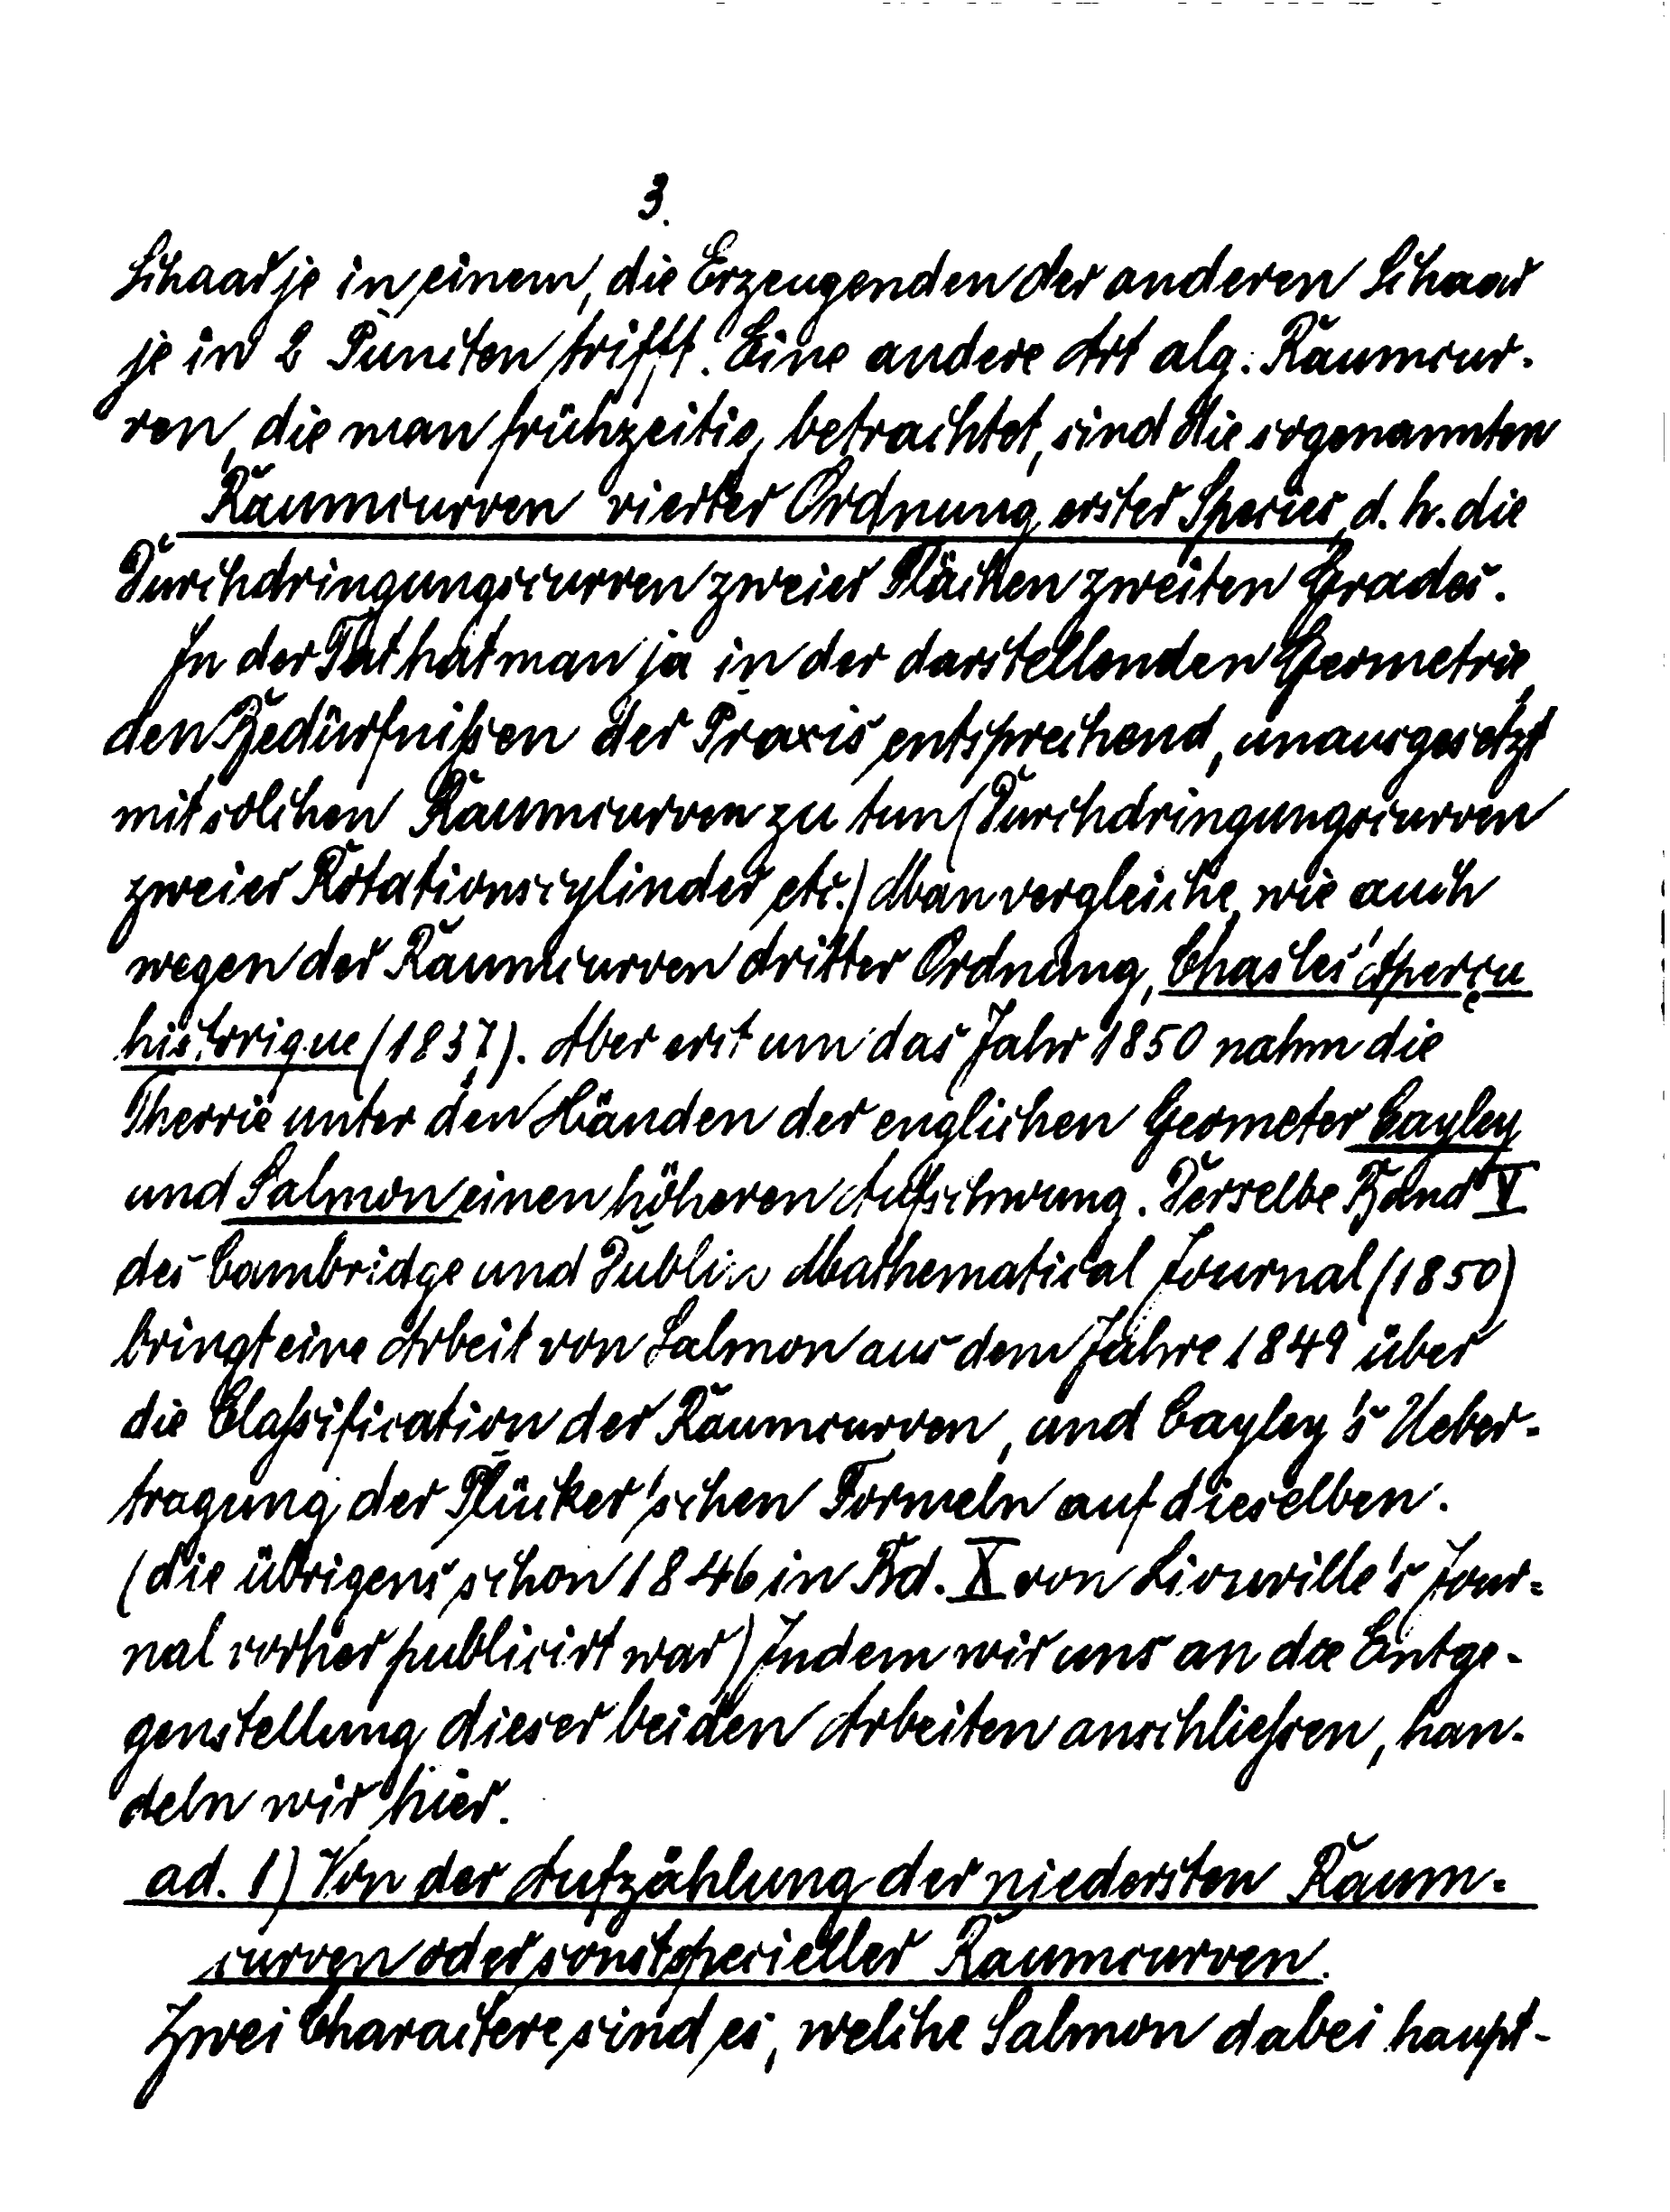 3.
Schaar je in einem, die Erzeugenden der anderen Schaar
je in 2 Puncten trifft. Eine andere Art alg. Raumcur-
ven, die man frühzeitig betrachtet, sind die sogenannten
Raumcurven vierter Ordnung erster Species, d. h. die
Durchdringungscurven zweier Flächen zweiten Grades.
In der Tat hat man ja in der darstellenden Geometrie,
den Bedürfnißen der Praxis entsprechend, unausgesetzt
mit solchen Raumcurven zu tun (Durchdringungscurven
zweier Rotationscylinder etc.) Man vergleiche, wie auch
wegen der Raumcurven dritter Ordnung, Chasles' Aperçu
historique (1837). Aber erst um das Jahr 1850 nahm die
Theorie unter den Händen der englichen Geometer Cayley
und Salmon einen höheren Aufschwung. Derselbe Band V
des Cambridge und Dublin Mathematical Journal (1850)
bringt eine Arbeit von Salmon aus dem Jahre 1849 über
die Claßification der Raumcurven, und Cayley's Ueber-
tragung der Plücker'schen Formeln auf dieselben.
(die übrigens schon 1846 in Bd. X von Liouville's Jour-
nal vorher publicirt war) Indem wir uns an die Entge-
genstellung dieser beiden Arbeiten anschließen, han-
deln wir hier.
ad. 1) Von der Aufzählung der niedersten Raum-
curven oder sonst specieller Raumcurven.
Zwei Charactere sind es, welche Salmon dabei haupt-